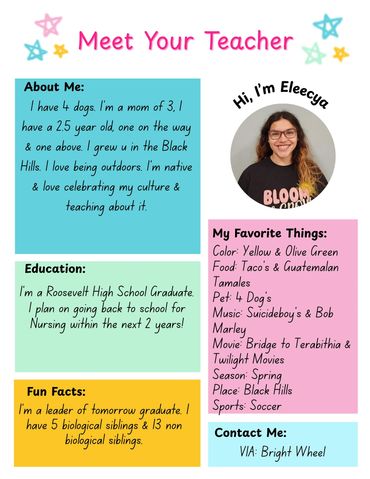 Meet Your Teacher
About Me:
I have 4 dogs. I'm a mom of 3, I
have a 2.5 year old, one on the way
& one above. I grew u in the Black
Hills. I love being outdoors. I'm native
& love celebrating my culture &
teaching about it.
Hi, I'm Eleecya
BLOOM
Education:
I'm a Roosevelt High School Graduate.
I plan on going back to school for
Nursing within the next 2 years!
Fun Facts:
I'm a leader of tomorrow graduate. I
have 5 biological siblings & 13 non
biological siblings.
My Favorite Things:
Color: Yellow & Olive Green
Food: Taco's & Guatemalan
Tamales
Pet: 4 Dog's
Music: Suicideboy's & Bob
Marley
Movie: Bridge to Terabithia &
Twilight Movies
Season: Spring
Place: Black Hills
Sports: Soccer
Contact Me:
VIA: Bright Wheel